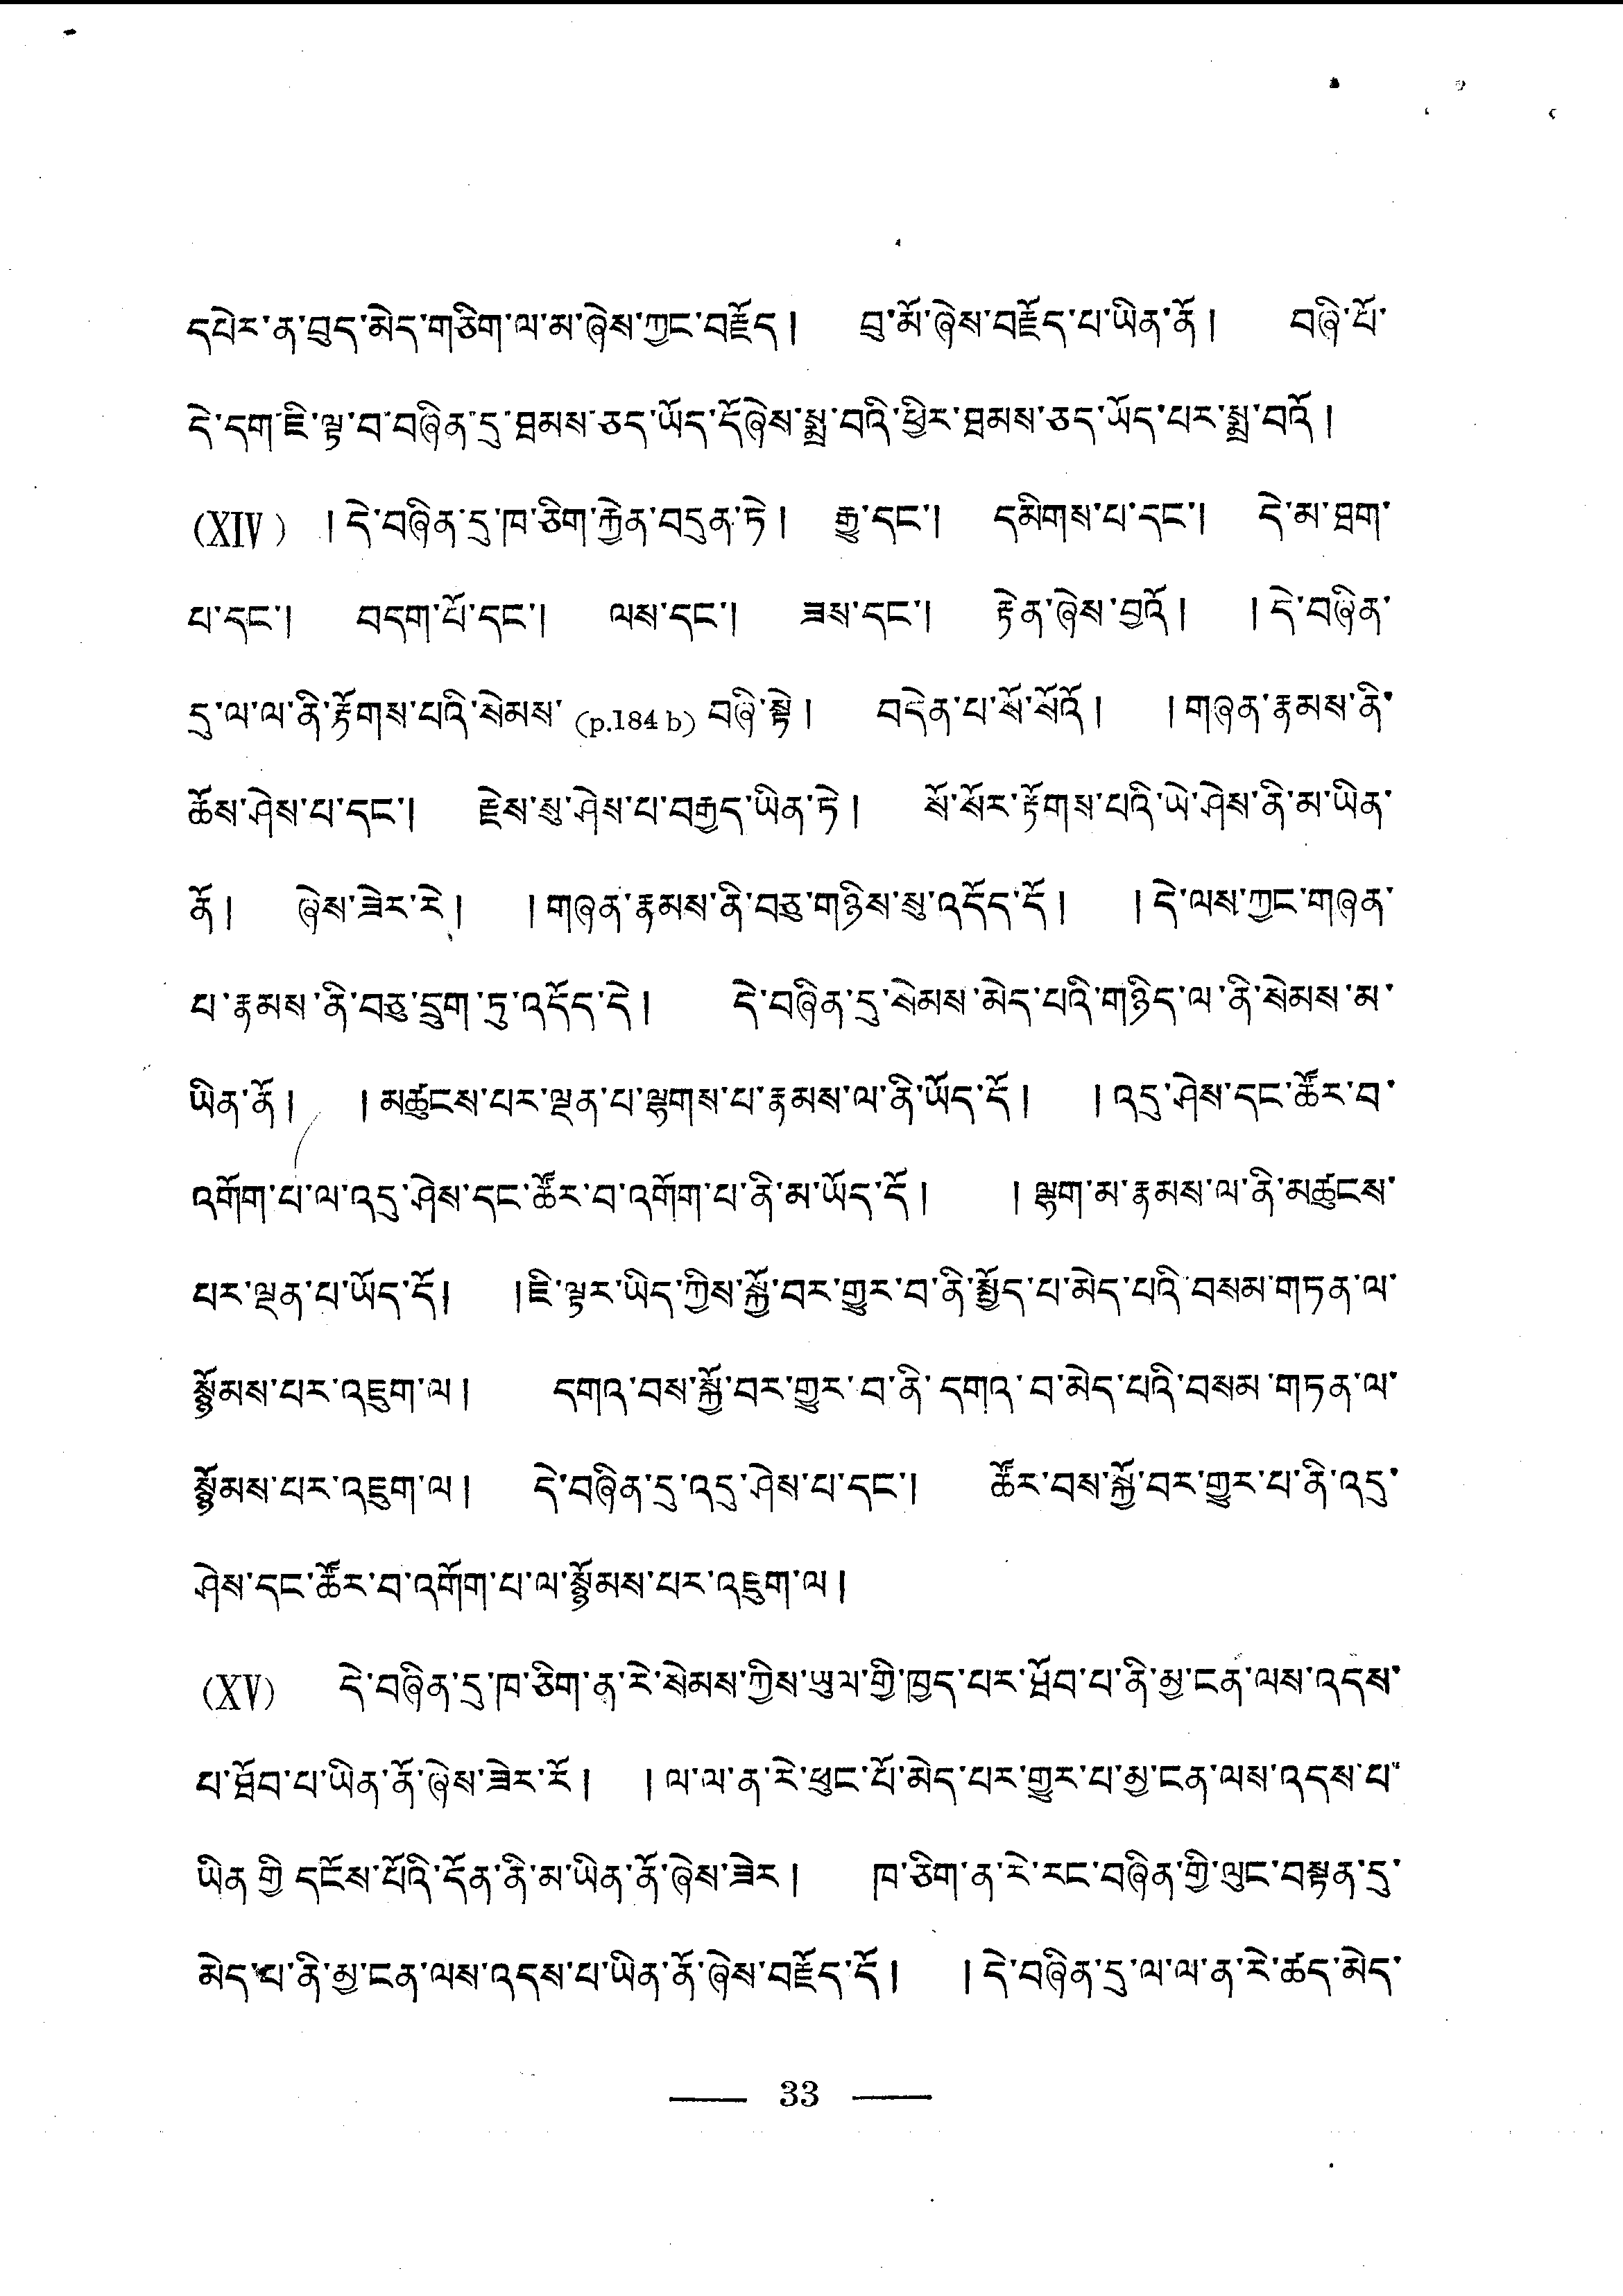 དཔེར་ན་བུད་མེད་གཅིག་ལ་མ་ཞེས་ཀྱང་བརྗོད། བུ་མོ་ཞེས་བརྗོད་པ་ཡིན་ནོ། བཞི་པོ་
དེ་དག་ཇི་ལྟ་བ་བཞིན་དུ་ཐམས་ཅད་ཡོད་དོཞེས་སྨྲ་བའི་ཕྱིར་ཐམས་ཅད་ཡོད་པར་སྨྲ་བའོ།
(XIV) །དེ་བཞིན་དུ་ཁ་ཅིག་རྐྱེན་བདུན་ཏེ། རྒྱུ་དང་། དམིགས་པ་དང་། དེ་མ་ཐག་
པ་དང་། བདག་པོ་དང་། ལས་དང་། ཟས་དང་། རྟེན་ཞེས་བྱའོ། །དེ་བཞིན་
དུ་ལ་ལ་ནི་རྟོགས་པའི་སེམས་ (p.184 b) བཞི་སྟེ། བདེན་པ་སོ་སོའོ། །གཞན་རྣམས་ནི་
ཆོས་ཤེས་པ་དང་། རྗེས་སུ་ཤེས་པ་བརྒྱད་ཡིན་ཏེ། སོ་སོར་རྟོགས་པའི་ཡེ་ཤེས་ནི་མ་ཡིན་
ནོ། ཞེས་ཟེར་རེ། །གཞན་རྣམས་ནི་བཅུ་གཉིས་སུ་འདོད་དོ། །དེ་ལས་ཀྱང་གཞན་
པ་རྣམས་ནི་བཅུ་དྲུག་ཏུ་འདོད་དེ། དེ་བཞིན་དུ་སེམས་མེད་པའི་གཉིད་ལ་ནི་སེམས་མ་
ཡིན་ནོ། །མཚུངས་པར་ལྡན་པ་ལྷགས་པ་རྣམས་ལ་ནི་ཡོད་དོ། །འདུ་ཤེས་དང་ཚོར་བ་
འགོག་པ་ལ་འདུ་ཤེས་དང་ཚོར་བ་འགོག་པ་ནི་མ་ཡོད་དོ། །ལྷག་མ་རྣམས་ལ་ནི་མཚུངས་
པར་ལྡན་པ་ཡོད་དོ། །ཇི་ལྟར་ཡིད་ཀྱིས་སྐྱོ་བར་གྱུར་བ་ནི་སྤྱོད་པ་མེད་པའི་བསམ་གཏན་ལ་
སྙོམས་པར་འཇུག་ལ། དགའ་བས་སྐྱོ་བར་གྱུར་བ་ནི་དགའ་བ་མེད་པའི་བསམ་གཏན་ལ་
སྙོམས་པར་འཇུག་ལ། དེ་བཞིན་དུ་འདུ་ཤེས་པ་དང་། ཚོར་བས་སྐྱོ་བར་གྱུར་པ་ནི་འདུ་
ཤེས་དང་ཚོར་བ་འགོག་པ་ལ་སྙོམས་པར་འཇུག་ལ།
(XV) དེ་བཞིན་དུ་ཁ་ཅིག་ན་རེ་སེམས་ཀྱིས་ཡུལ་གྱི་ཁྱད་པར་ཐོབ་པ་ནི་མྱ་ངན་ལས་འདས་
པ་ཐོབ་པ་ཡིན་ནོ་ཞེས་ཟེར་རོ། །ལ་ལ་ན་རེ་ཕུང་པོ་མེད་པར་གྱུར་པ་མྱ་ངན་ལས་འདས་པ་
ཡིན་གྱི་དངོས་པོའི་དོན་ནི་མ་ཡིན་ནོ་ཞེས་ཟེར། ཁ་ཅིག་ན་རེ་རང་བཞིན་གྱི་ལུང་བསྟན་དུ་
མེད་པ་ནི་མྱ་ངན་ལས་འདས་པ་ཡིན་ནོ་ཞེས་བརྗོད་དོ། །དེ་བཞིན་དུ་ལ་ལ་ན་རེ་ཚད་མེད་
33